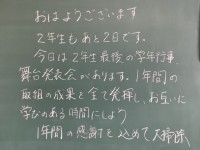 おはようございます
2年生もあと2日です。
今日は2年生最後の学年行事、
舞台発表会があります。1年間の
取組の成果を全て発揮し、お互いに
学びのある時間にしよう
1年間の感謝を込めて大掃除